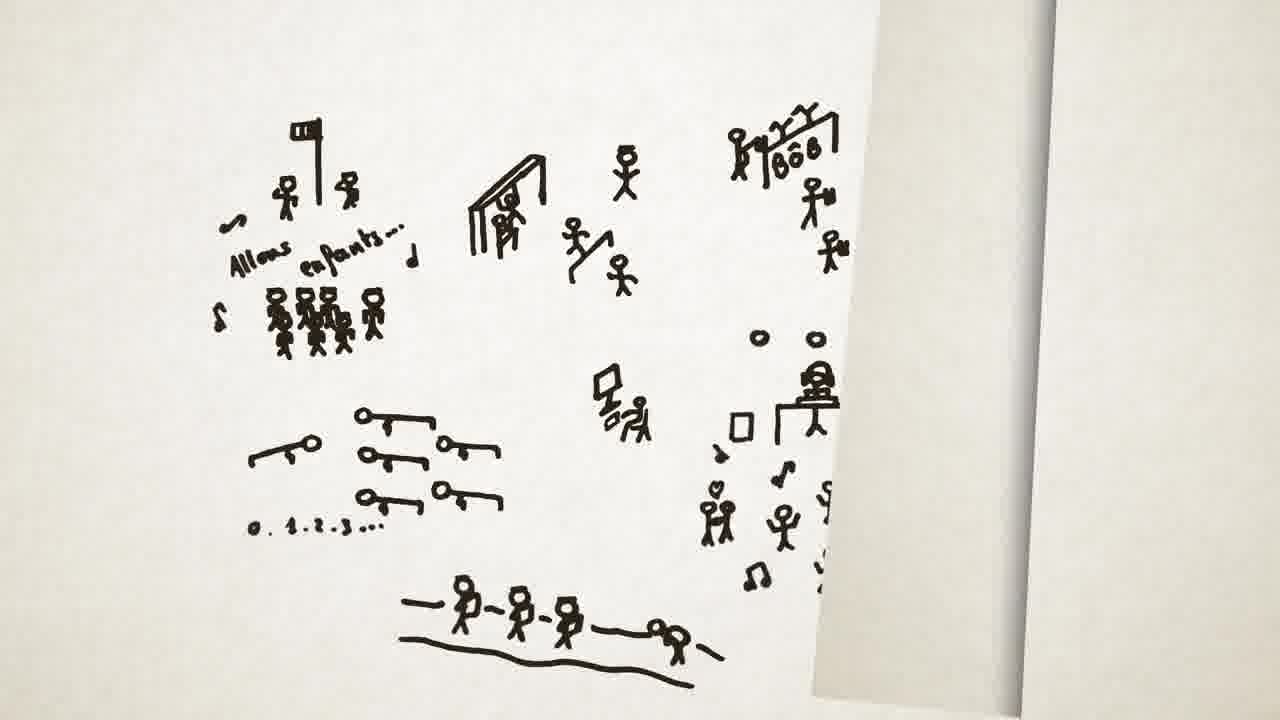 Allons enfants...
BôB
0.1.2.3...